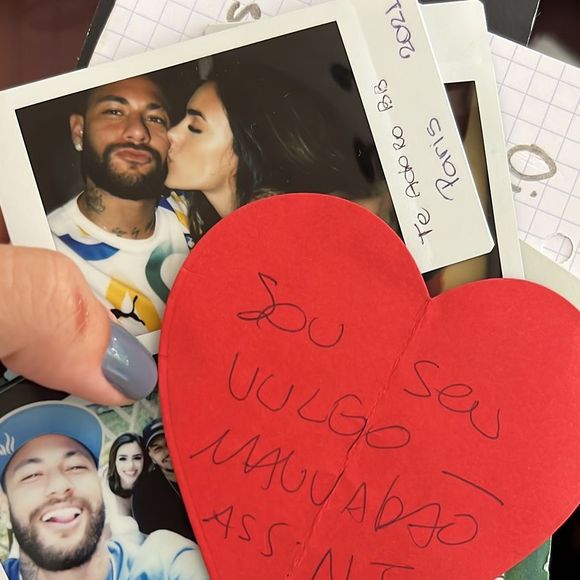 Te Adoro BB
Paris 2021
SOU SEU
VULGO
MAUVADÃO
ASS: NJ